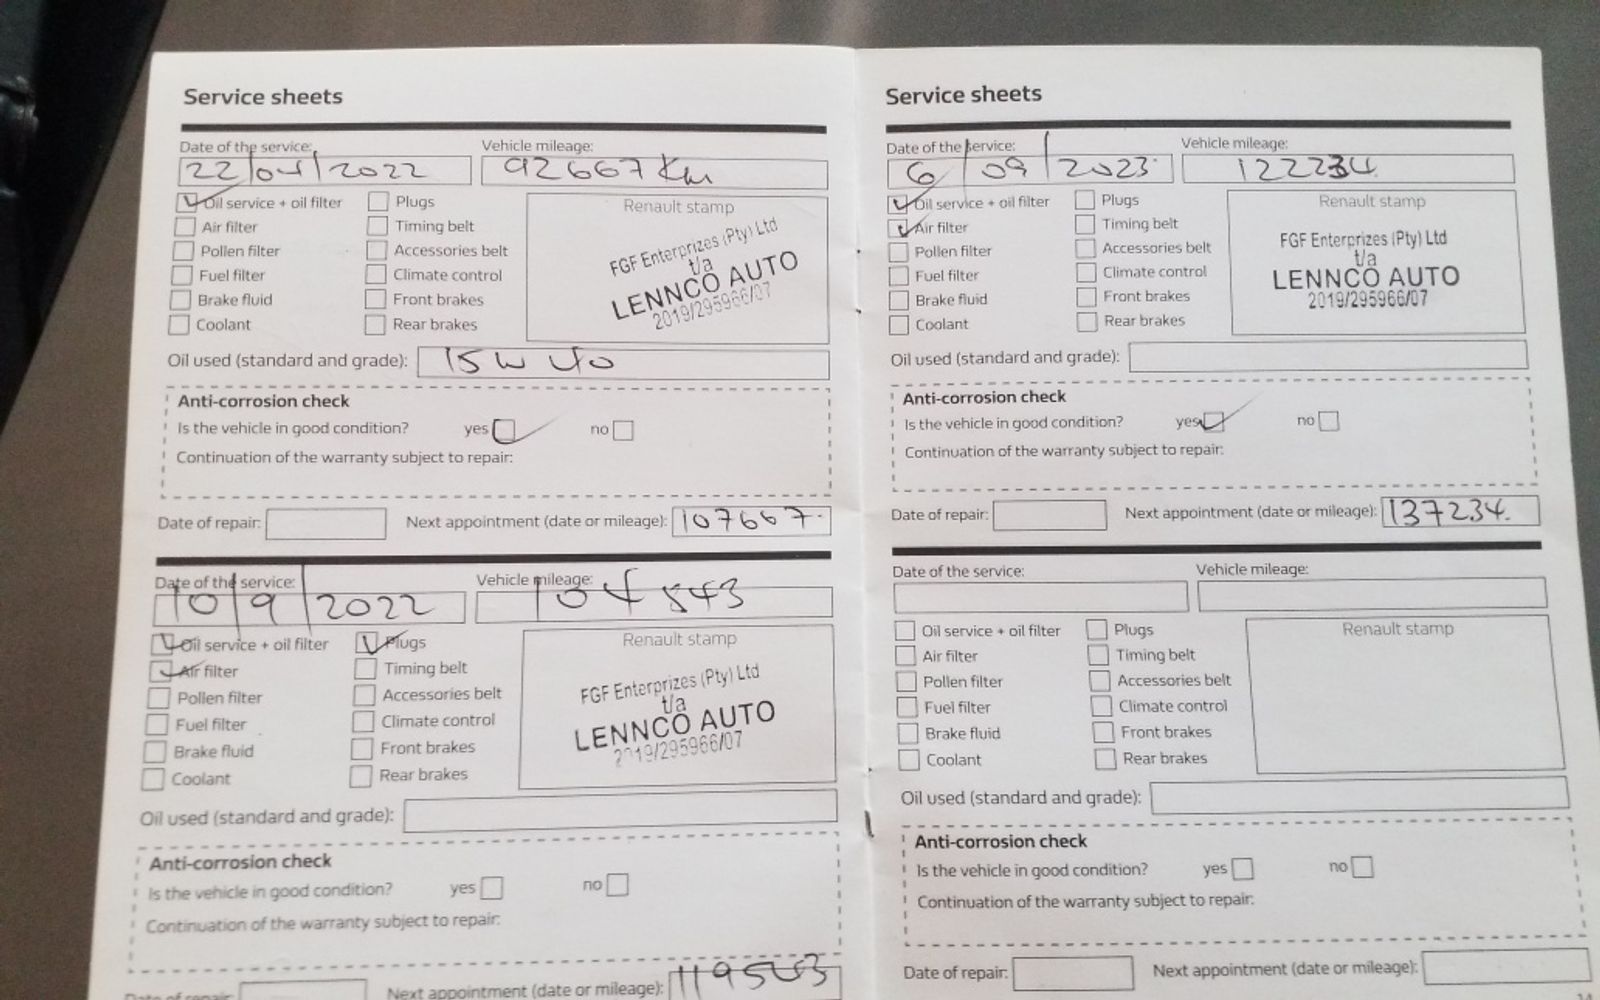 Service sheets
Date of the service: Vehicle mileage:
22/04/2022 92667 Km
Oil service + oil filter Plugs Renault stamp
Air filter Timing belt FGF Enterprizes (Pty) Ltd
Pollen filter Accessories belt t/a
Fuel filter Climate control LENNCO AUTO
Brake fluid Front brakes 2019/295966/07
Coolant Rear brakes
Oil used (standard and grade): 15W40
Anti-corrosion check
Is the vehicle in good condition? yes no
Continuation of the warranty subject to repair:
Date of repair: Next appointment (date or mileage): 107667.
Date of the service: Vehicle mileage:
10/9/2022 104543
Oil service + oil filter Plugs Renault stamp
Air filter Timing belt
Pollen filter Accessories belt FGF Enterprizes (Pty) Ltd
Fuel filter Climate control t/a
Brake fluid Front brakes LENNCO AUTO
Coolant Rear brakes 2019/295966/07
Oil used (standard and grade):
Anti-corrosion check
Is the vehicle in good condition? yes no
Continuation of the warranty subject to repair:
Date of repair: Next appointment (date or mileage): 119543
Service sheets
Date of the service: Vehicle mileage:
6/09/2023 122234
Oil service + oil filter Plugs Renault stamp
Air filter Timing belt FGF Enterprizes (Pty) Ltd
Pollen filter Accessories belt t/a
Fuel filter Climate control LENNCO AUTO
Brake fluid Front brakes 2019/295966/07
Coolant Rear brakes
Oil used (standard and grade):
Anti-corrosion check
Is the vehicle in good condition? yes no
Continuation of the warranty subject to repair:
Date of repair: Next appointment (date or mileage): 137234.
Date of the service: Vehicle mileage:
Oil service + oil filter Plugs Renault stamp
Air filter Timing belt
Pollen filter Accessories belt
Fuel filter Climate control
Brake fluid Front brakes
Coolant Rear brakes
Oil used (standard and grade):
Anti-corrosion check
Is the vehicle in good condition? yes no
Continuation of the warranty subject to repair:
Date of repair: Next appointment (date or mileage):